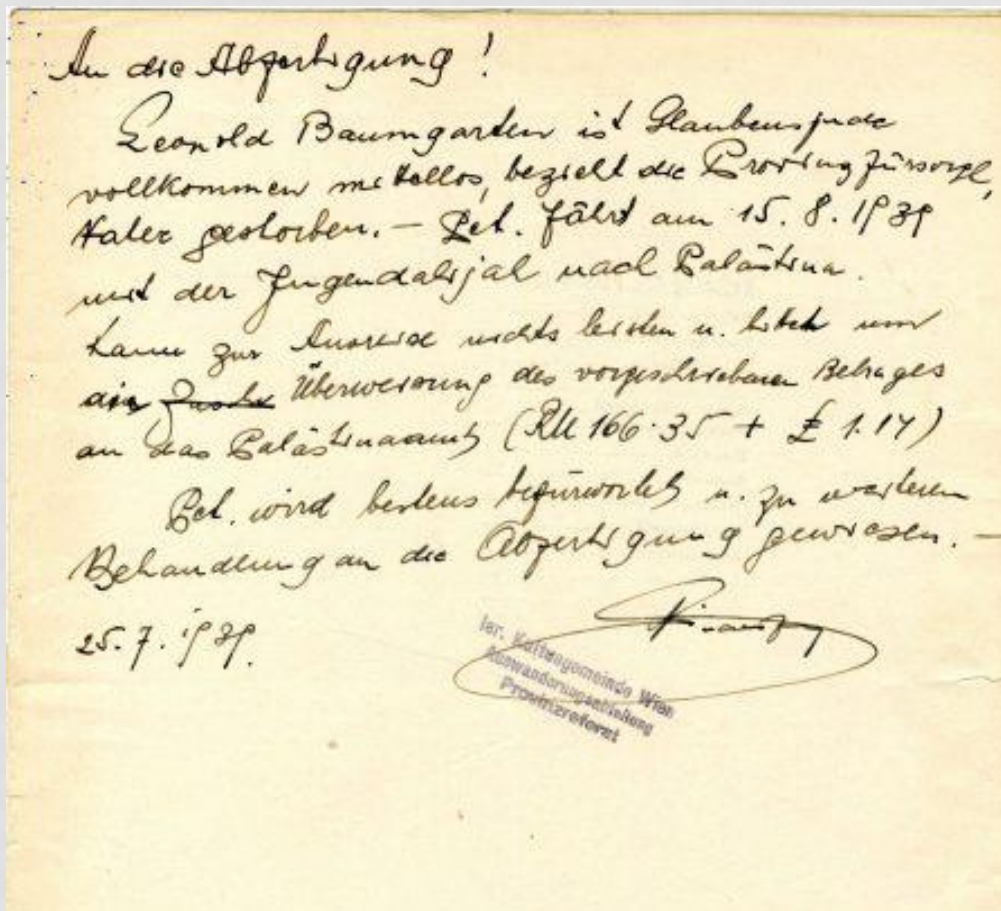 An die Abfertigung!
Leopold Baumgarten ist Glaubensjude
vollkommen mitellos, bezieht die Provinzfürsorge,
Vater gestorben. — Pet. fährt am 15. 8. 1939
mit der Jugendalijah nach Palästina.
kann zur Ausreise nichts leisten u. bittet um
die Überweisung des vorgeschriebenen Betrages
an das Palästinaamt (RM 166.35 + £ 1.14)
Pet. wird bestens befürwortet u. zu weiteren
Behandlung an die Abfertigung gewiesen. —
25. 7. 1939.
Isr. Kultusgemeinde Wien
Auswanderungsabteilung
Provinzreferat